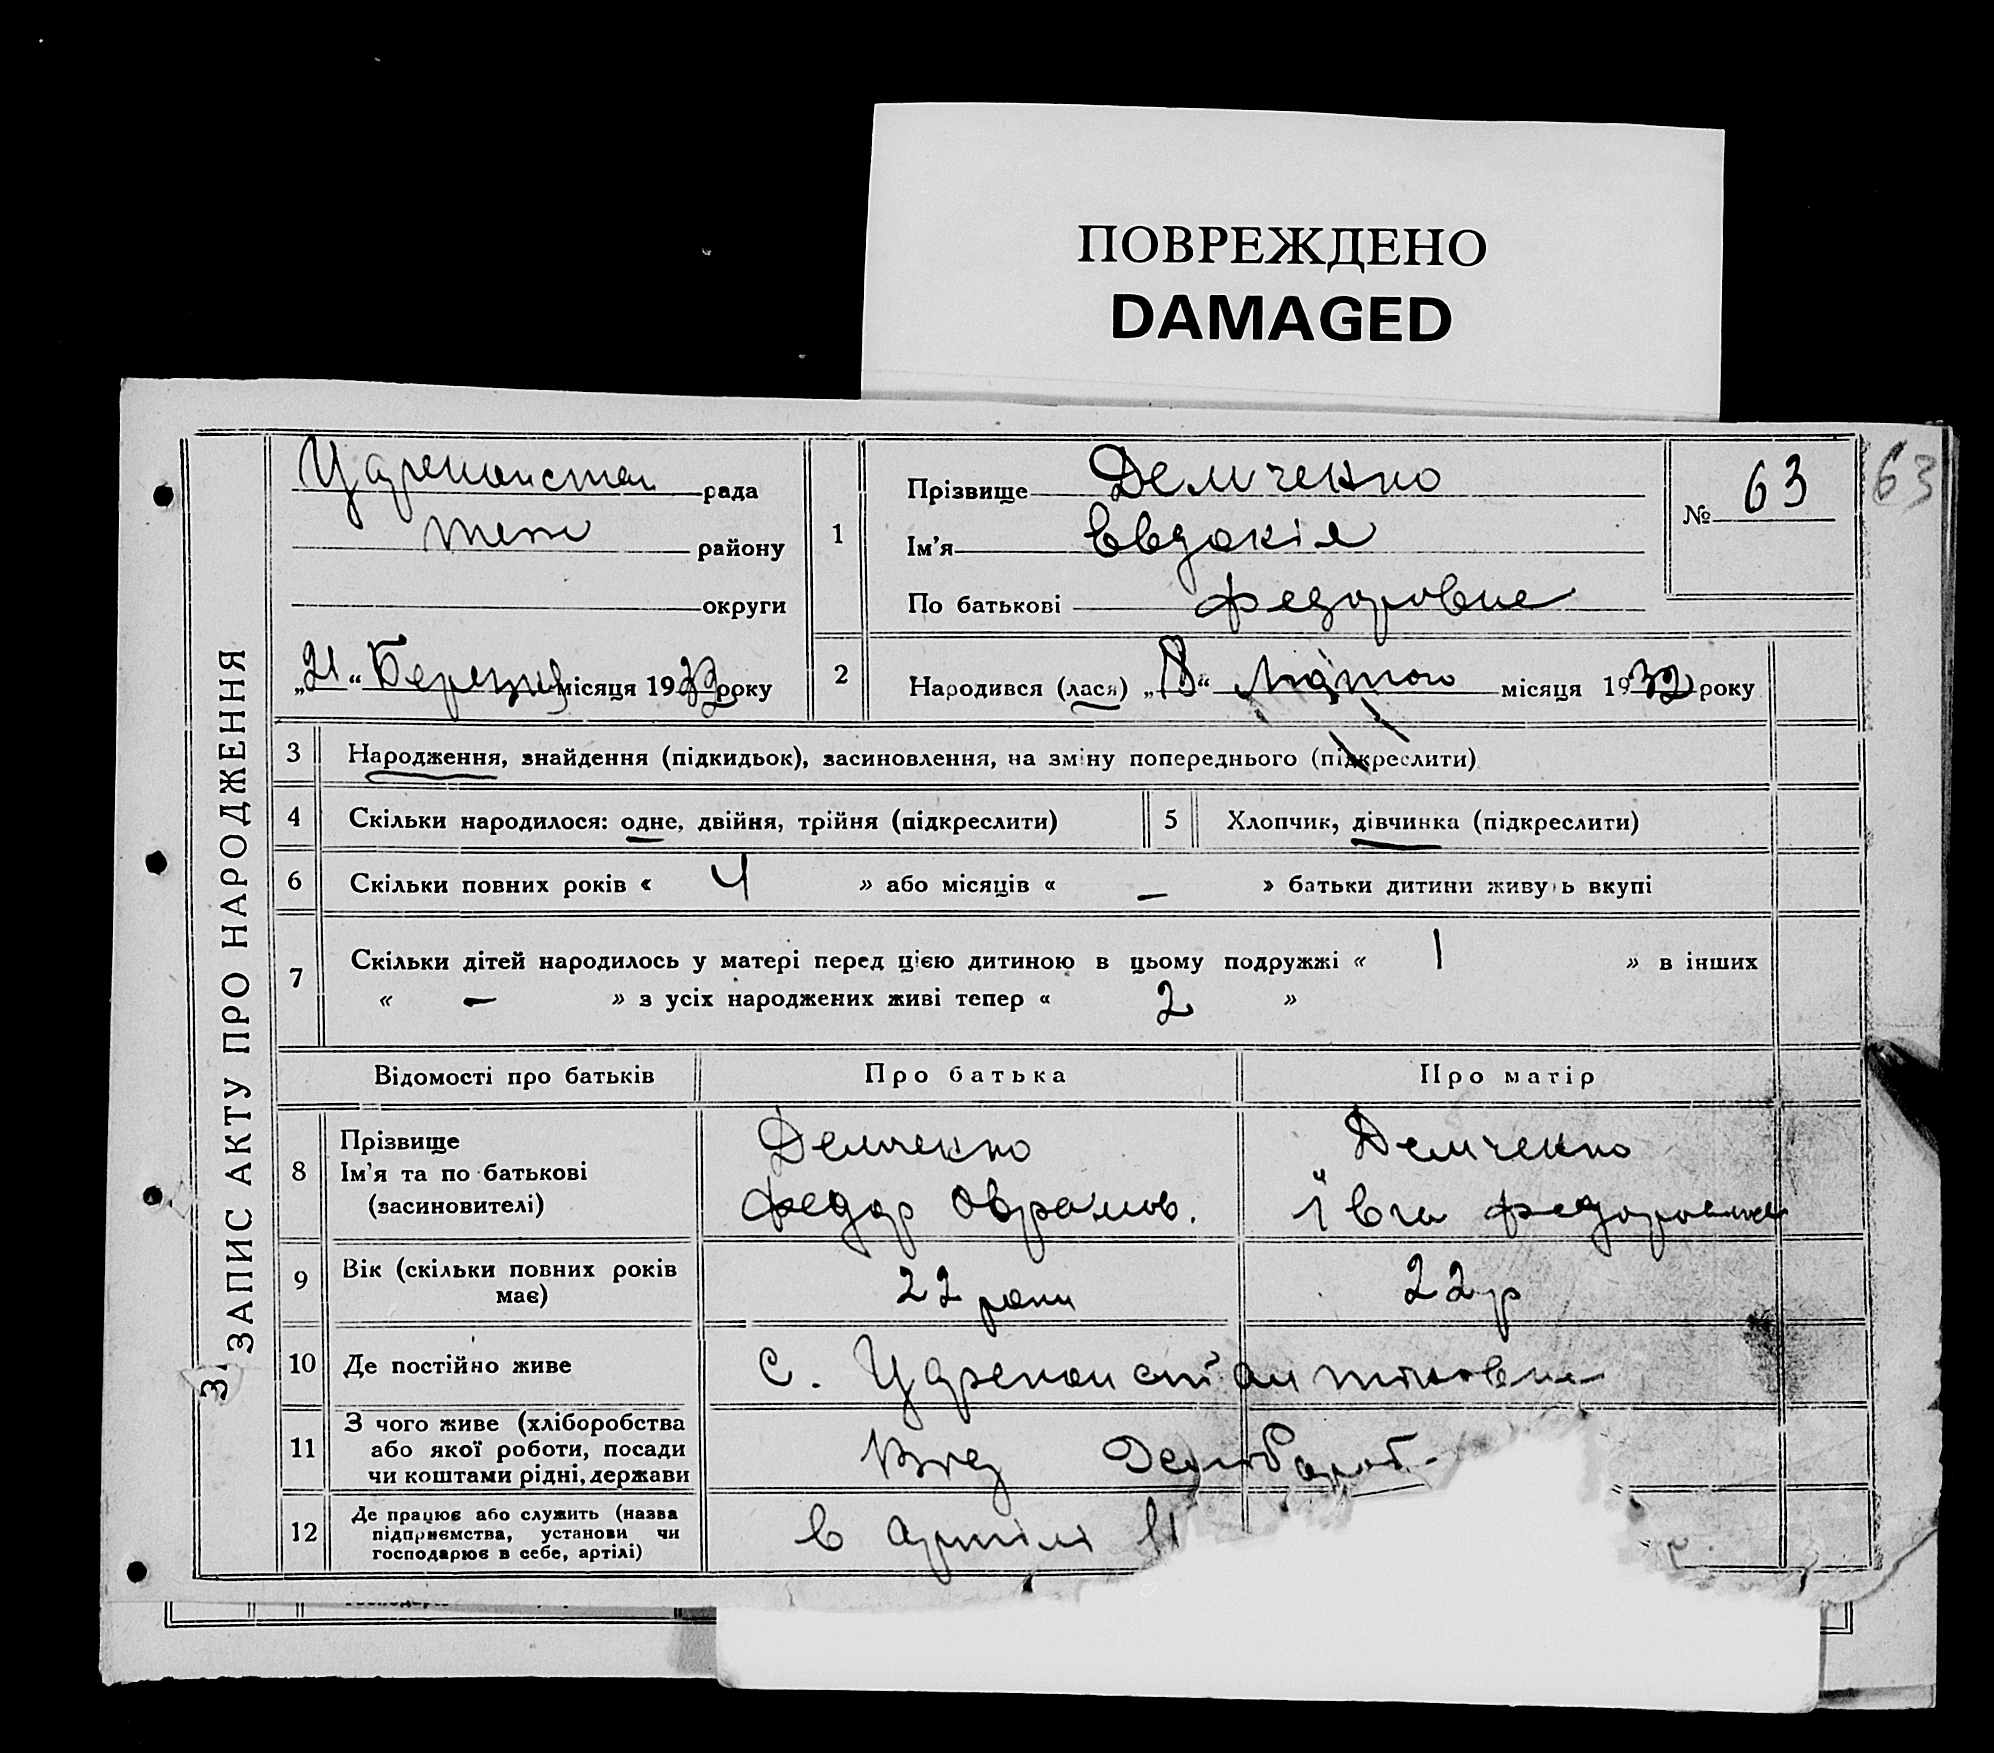 ПОВРЕЖДЕНО
DAMAGED
ЗАПИС АКТУ ПРО НАРОДЖЕННЯ
Цареконстан рада
району
округи
„21“ Березня місяця 1932 року
1
Прізвище Демченко
Ім’я Євдокія
По батькові Федоровна
№ 63
63
2
Народився (лася) „8“ Лютого місяця 1932 року
3 Народження, знайдення (підкидьок), засиновлення, на зміну попереднього (підкреслити)
4 Скільки народилося: одне, двійня, трійня (підкреслити)
5 Хлопчик, дівчинка (підкреслити)
6 Скільки повних років « 4 » або місяців « — » батьки дитини живуть вкупі
7 Скільки дітей народилось у матері перед цією дитиною в цьому подружжі « 1 » в інших
« — » з усіх народжених живі тепер « 2 »
Відомості про батьків Про батька Про матір
8
Прізвище Демченко Демченко
Ім’я та по батькові Федор Оврамов. Ївга Федоровна
(засиновителі)
9 Вік (скільки повних років 22 роки 22 р
має)
10 Де постійно живе с. Цареконстантиновка
11
З чого живе (хліборобства
або якої роботи, посади
чи коштами рідні, держави
12
Де працює або служить (назва
підприємства, установи чи
господарює в себе, артілі)
в артілі